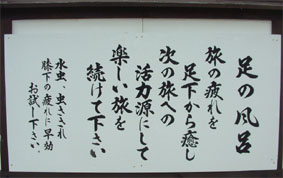 足の風呂
旅の疲れを
足下から癒し
次の旅への
活力源にして
楽しい旅を
続けて下さい。
水虫、虫さされ
膝下の疲れに早効
お試し下さい。